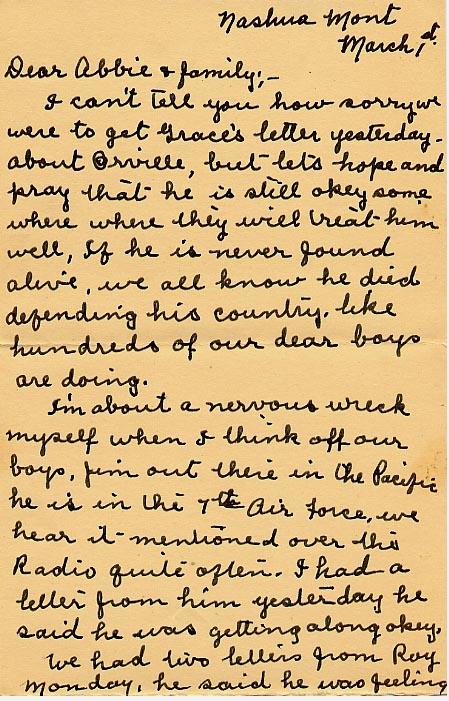 Nashua Mont
March, 1st.
Dear Abbie & family;-
I can't tell you how sorry we
were to get Grace's letter yesterday-
about Orville, but let's hope and
pray that he is still okey some
where where they will treat him
well, If he is never found
alive, we all know he died
defending his country. like
hundreds of our dear boys
are doing.
I'm about a nervous wreck
myself when I think off our
boys, Jim out there in the Pacific
he is in the 7th Air Force, we
hear it mentioned over the
Radio quite often. I had a
letter from him yesterday he
said he was getting along okey.
We had two letters from Roy
Monday, he said he was feeling